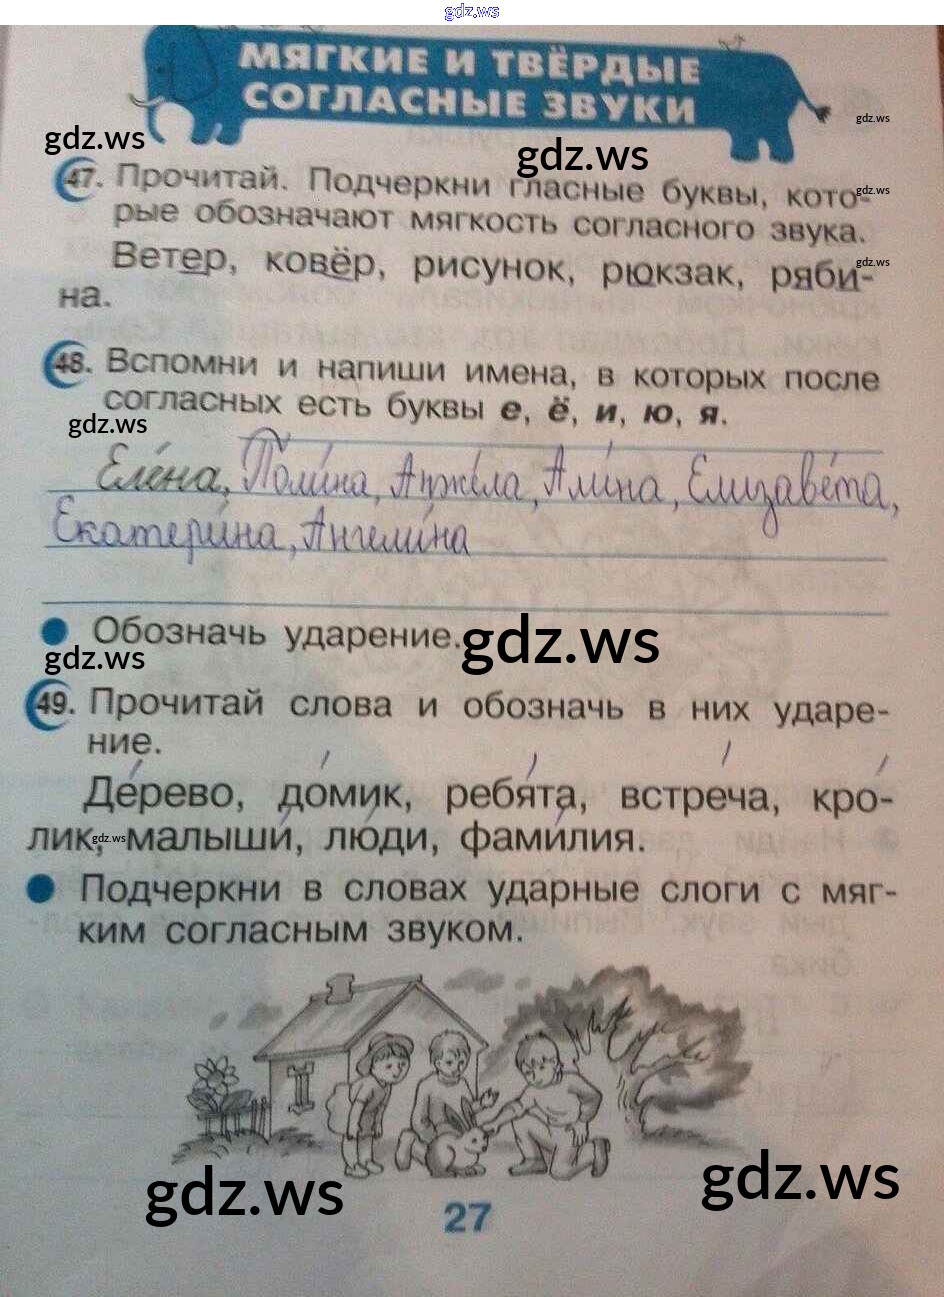 gdz.ws
МЯГКИЕ И ТВЁРДЫЕ
СОГЛАСНЫЕ ЗВУКИ
gdz.ws
gdz.ws
gdz.ws
47. Прочитай. Подчеркни гласные буквы, кото-
gdz.ws
рые обозначают мягкость согласного звука.
Ветер, ковёр, рисунок, рюкзак, ряби-
gdz.ws
на.
48. Вспомни и напиши имена, в которых после
согласных есть буквы е, ё, и, ю, я.
gdz.ws
Еле́на, Поли́на, Анже́ла, Али́на, Елизаве́та,
Екатери́на, Ангели́на
Обозначь ударение.
gdz.ws
gdz.ws
49. Прочитай слова и обозначь в них ударе-
ние.
Де́рево, до́мик, ребя́та, встре́ча, кро́-
лик, малыши́, лю́ди, фами́лия.
gdz.ws
Подчеркни в словах ударные слоги с мяг-
ким согласным звуком.
gdz.ws
gdz.ws
27